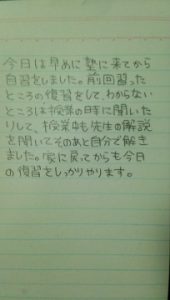 今日は早めに塾に来てから
自習をしました。前回習った
ところの復習をして、わからない
ところは授業の時に聞いた
りして、授業中も先生の解説
を聞いてそのあと自分で解き
ました。家に戻ってからも今日
の復習をしっかりやります。